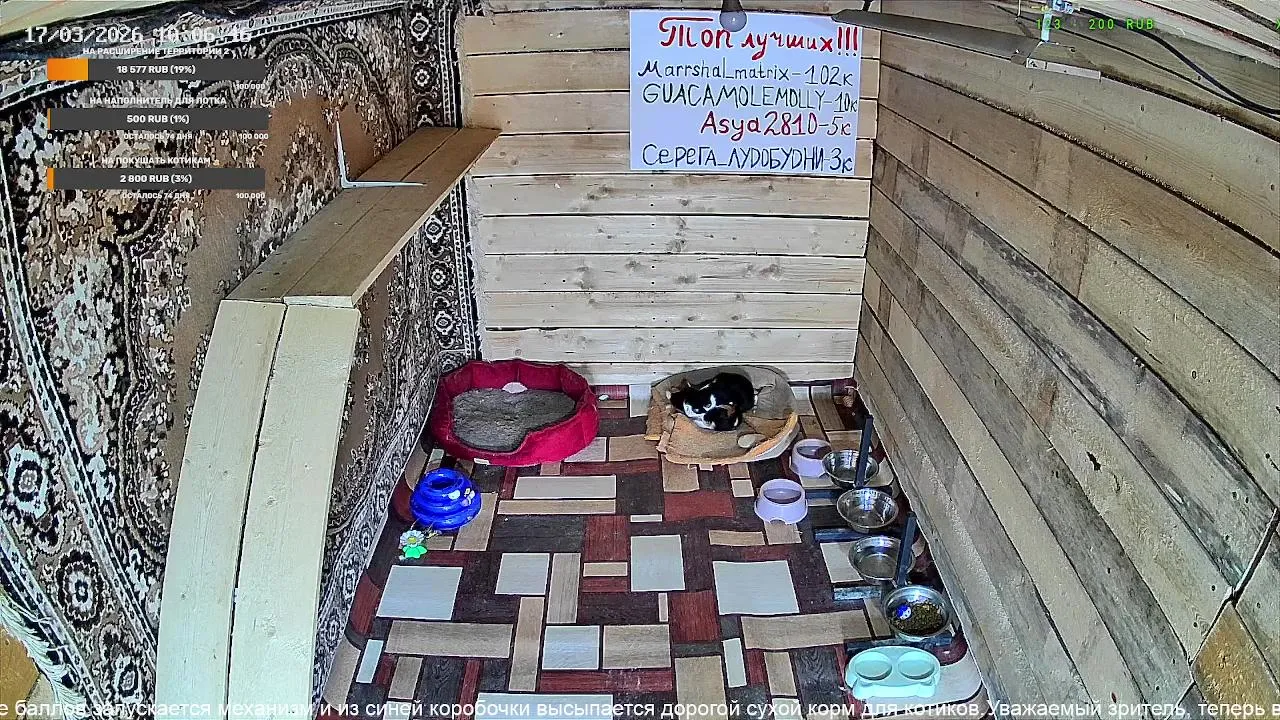 17/03/2026 10:06:46
123 : 200 RUB
НА РАСШИРЕНИЕ ТЕРРИТОРИИ 2
18 577 RUB (19%)
0 100 000
НА НАПОЛНИТЕЛЬ ДЛЯ ЛОТКА
500 RUB (1%)
ОСТАЛОСЬ 74 ДНЯ 100 000
НА ПОКУШАТЬ КОТИКАМ
2 800 RUB (3%)
ОСТАЛОСЬ 74 ДНЯ 100 000
Топ лучших!!!
Marrshal_matrix-102к
GUACAMOLEMOLLY-10к
Asya2810-5к
Серега_лудобудни-3к
е баллов запускается механизм и из синей коробочки высыпается дорогой сухой корм для котиков. Уважаемый зритель, теперь в